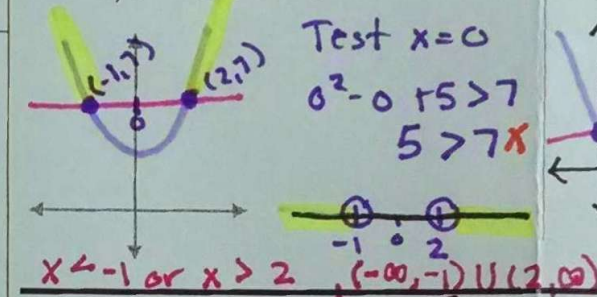 (-1,7)
(2,7)
0
Test x=0
0²-0+5>7
5>7x
-1 0 2
x<-1 or x>2, (-∞,-1)U(2,∞)